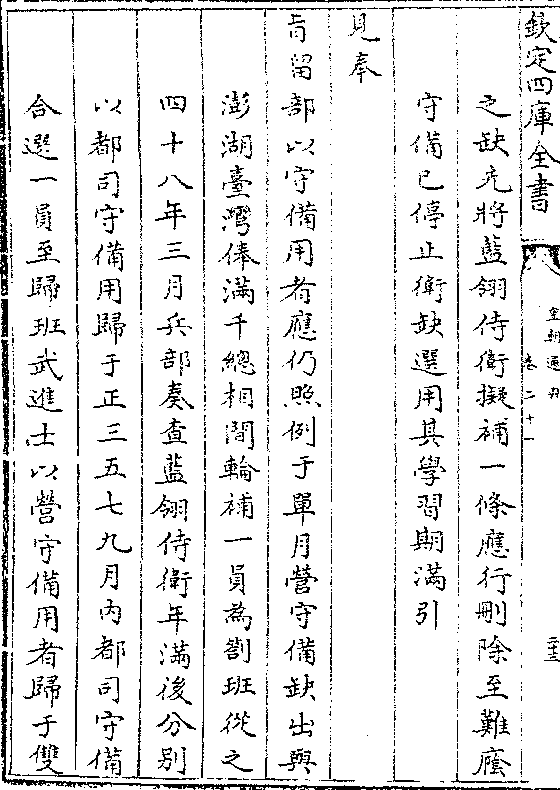 欽定四庫全書
卷二十一
之缺先將藍翎侍衛擬補一條應行刪除至難廕
守備已停止衛缺選用其學習期滿引
見奉
旨留部以守備用者應仍照例于單月營守備缺出與
澎湖臺灣俸滿千總相間輪補一員為劄班從之
四十八年三月兵部奏查藍翎侍衛年滿後分別
以都司守備用歸于正三五七九月內都司守備
合選一員至歸班武進士以營守備用者歸于雙